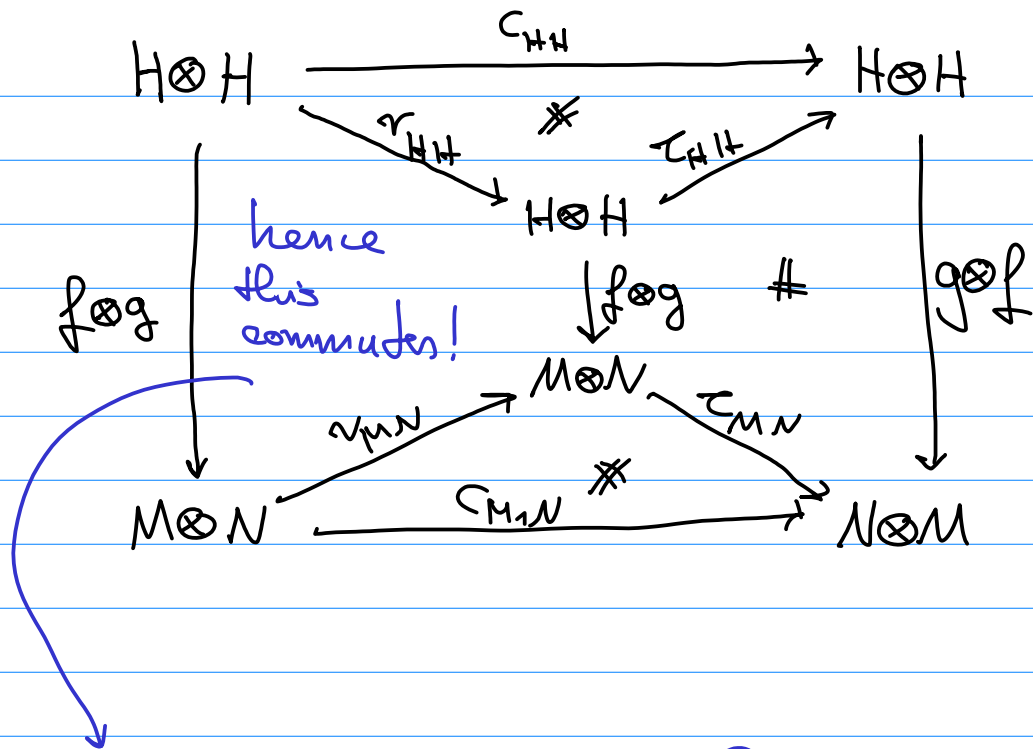 C_HH
H⊗H H⊗H
r_HH τ_HH
H⊗H
hence
this
commutes!
f⊗g f⊗g # g⊗f
M⊗N
r_MN τ_MN
C_M,N
M⊗N N⊗M